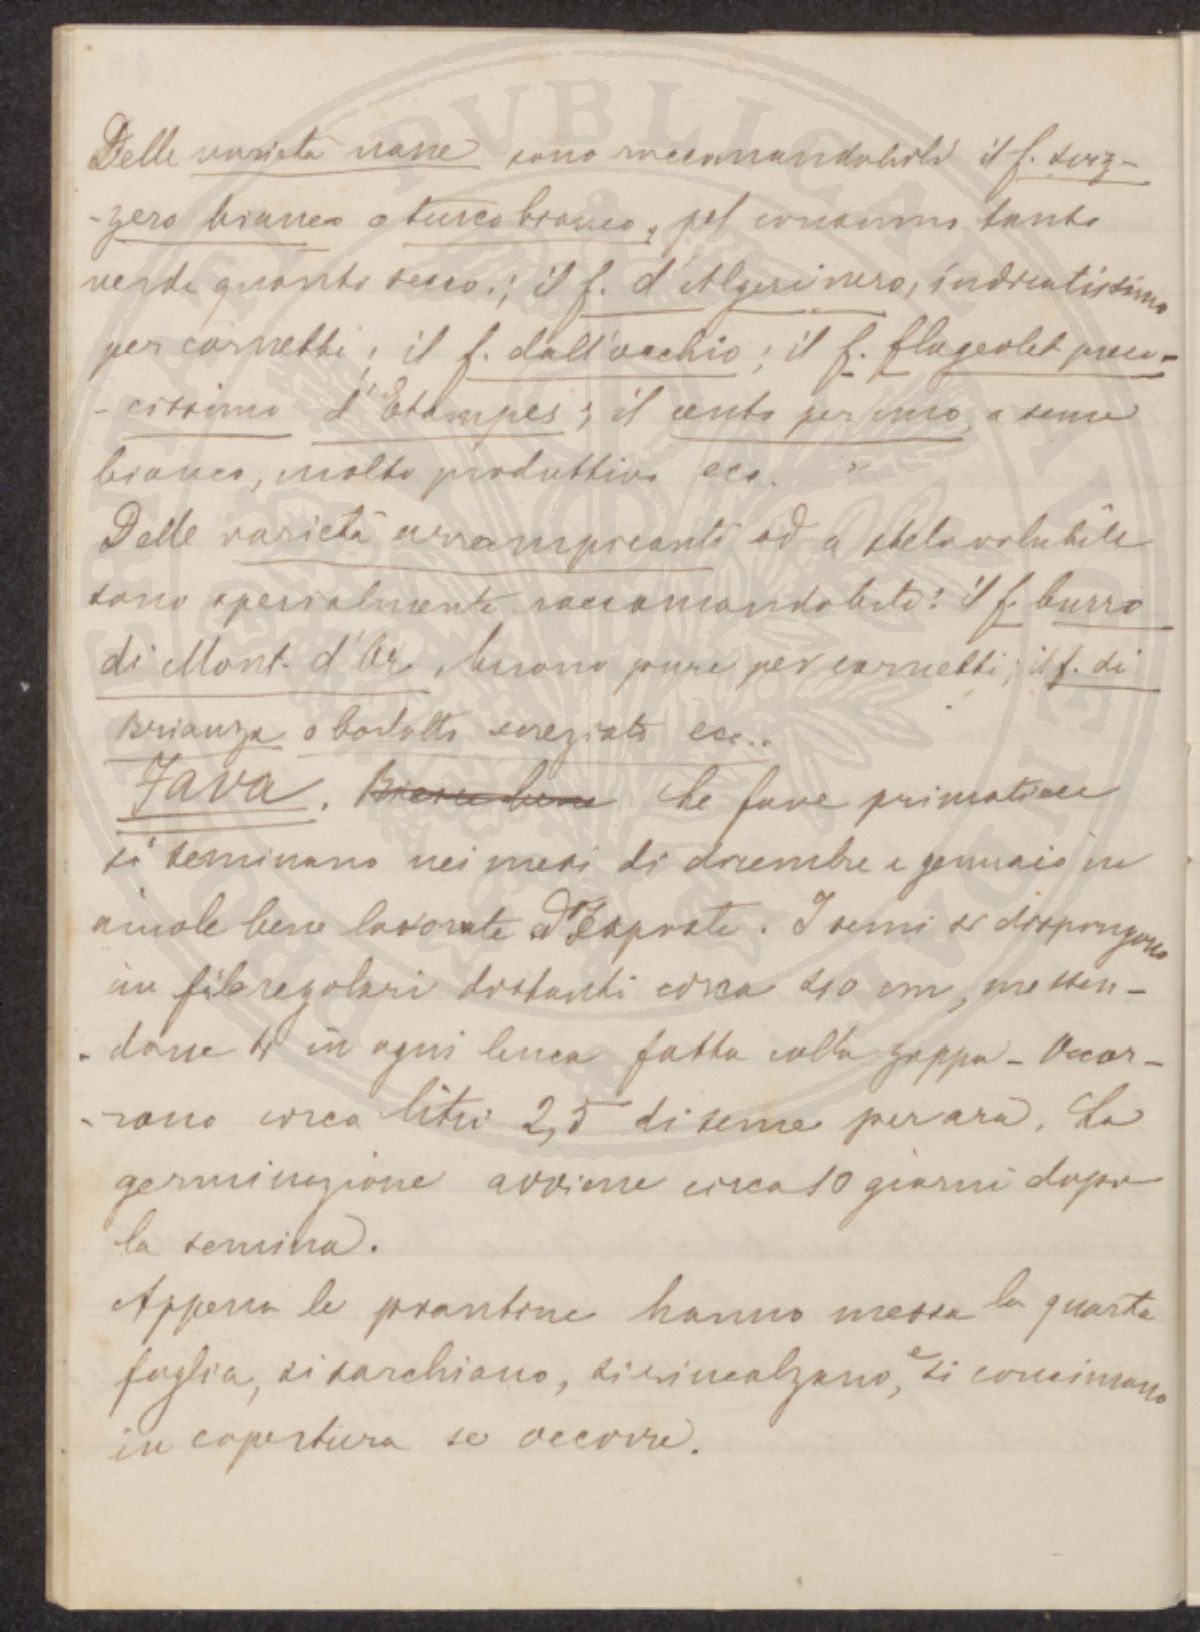 Delle varietà nane sono raccomandabili il f. sviz-
-zero bianco o turco bianco, pel consumo tanto
verde quanto secco; il f. d'Algeri nero, indicatissimo
per cornetti; il f. dall'occhio; il f. flageolet preco-
-cissimo d'Etampes; il cento per uno, a seme
bianco, molto produttivo ecc.
Delle varietà arrampicanti od a stelo volubile
sono specialmente raccomandabili: il f. burro
di Mont-d'Or, buono pure per cornetti; il f. di
Brianza o borlotto screziato ecc..
Fava. Le fave primaticce
si seminano nei mesi di dicembre e gennaio in
aiuole bene lavorate ed esposte. I semi si dispongono
in file regolari distanti circa 40 cm, metten-
-done 4 in ogni buca fatta colla zappa - Occor-
-rono circa litri 2,5 di seme per ara. La
germinazione avviene circa 10 giorni dopo
la semina.
Appena le piantine hanno messa la quarta
foglia, si sarchiano, si rincalzano, e si concimano
in copertura se occorre.
PVBLICAE